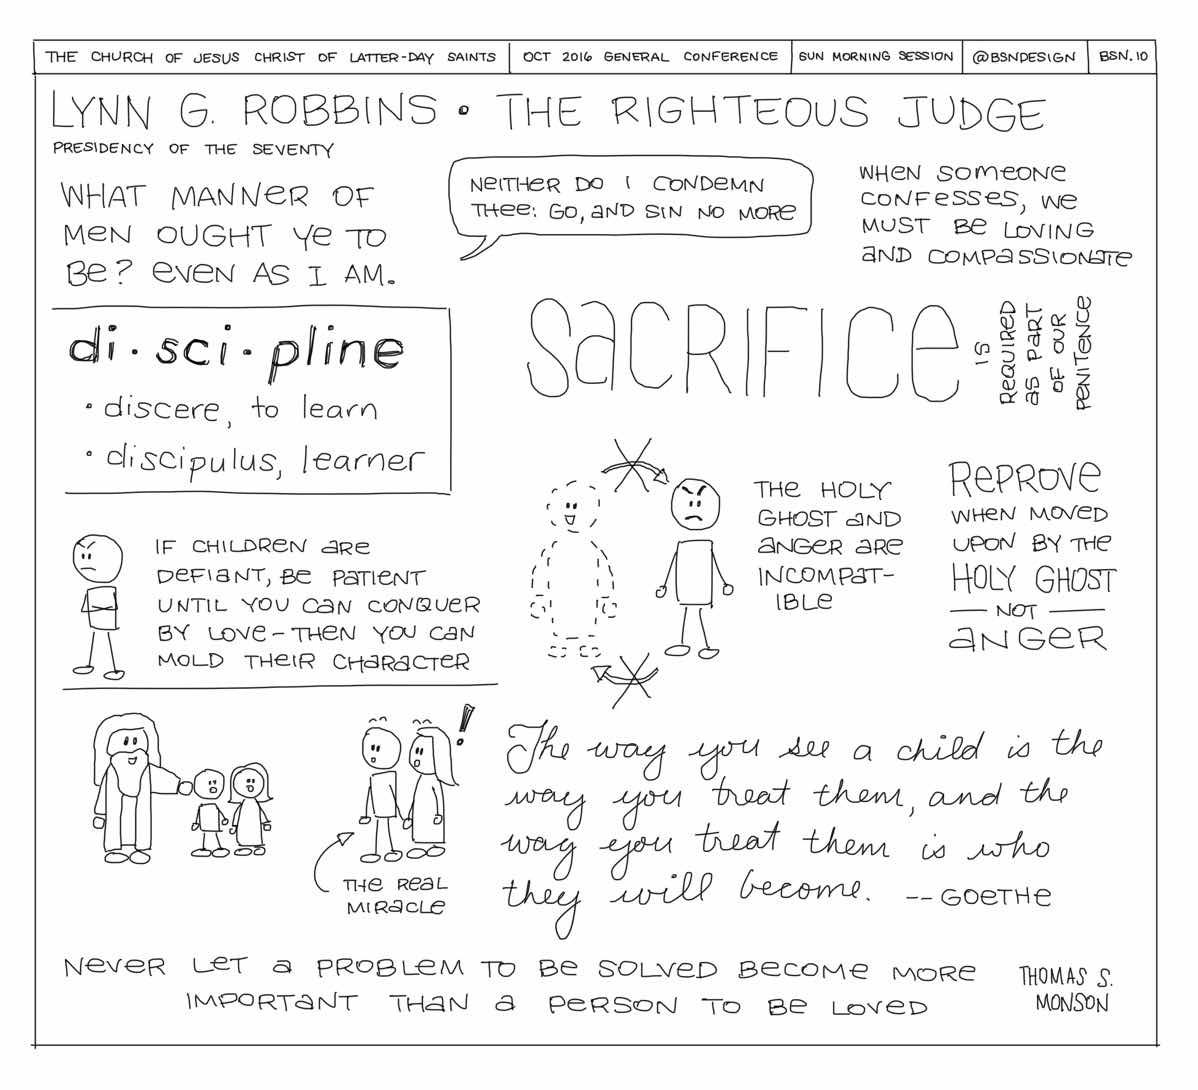 THE CHURCH OF JESUS CHRIST OF LATTER-DAY SAINTS
OCT 2016 GENERAL CONFERENCE
SUN MORNING SESSION
@BSNDESIGN
BSN.10
LYNN G. ROBBINS • THE RIGHTEOUS JUDGE
PRESIDENCY OF THE SEVENTY
WHAT MANNER OF
MEN OUGHT YE TO
BE? EVEN AS I AM.
NEITHER DO I CONDEMN
THEE: GO, AND SIN NO MORE
WHEN SOMEONE
CONFESSES, WE
MUST BE LOVING
AND COMPASSIONATE
di·sci·pline
• discere, to learn
• discipulus, learner
SACRIFICE
IS
REQUIRED
AS PART
OF OUR
PENITENCE
IF CHILDREN ARE
DEFIANT, BE PATIENT
UNTIL YOU CAN CONQUER
BY LOVE - THEN YOU CAN
MOLD THEIR CHARACTER
THE HOLY
GHOST AND
ANGER ARE
INCOMPAT-
IBLE
REPROVE
WHEN MOVED
UPON BY THE
HOLY GHOST
— NOT —
ANGER
!
THE REAL
MIRACLE
The way you see a child is the
way you treat them, and the
way you treat them is who
they will become. -- GOETHE
NEVER LET A PROBLEM TO BE SOLVED BECOME MORE
IMPORTANT THAN A PERSON TO BE LOVED
THOMAS S.
MONSON